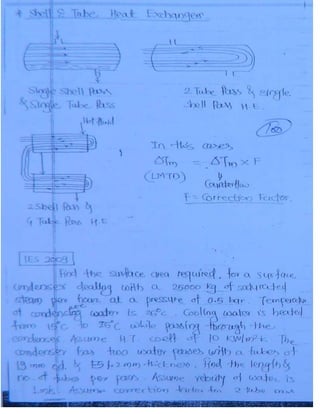 * Shell & Tube Heat Exchanger
Single Shell Pass
& Single Tube Pass
2 Tube Pass & single
shell Pass H.E.
Hot fluid
In this cases
ΔTm = ΔTm × F
(LMTD)
Counterflow
F = Correction Factor.
2 Shell Pass &
4 Tube Pass H.E
IES 2003
Find the surface area required, for a surface
condenser dealing with a 25000 kg of saturated
steam per hour at a pressure of 0.5 bar. Temperature
of condensing water is Cooling water is heated
from 15°C to 25°C while passing through the
condenser Assume H.T. coeff of 10 KW/m²K The
condenser has two water passes with a tubes of
19 mm od & 1.2 mm thickness. Find the length &
no of tubes per pass. Assume velocity of water is
1 m/s. Assume correction factor for 2 tube